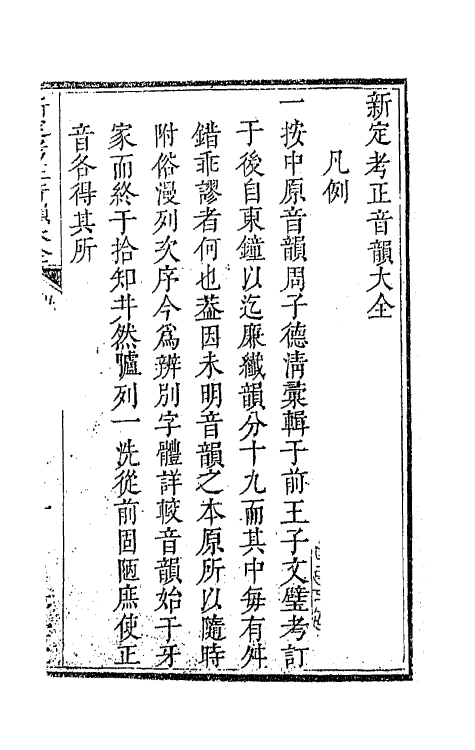 新定考正音韻大全
凡例
一按中原音韻周子德清彚輯于前王子文璧考訂
于後自東鐘以迄廉纖韻分十九而其中每有舛
錯乖謬者何也葢因未明音韻之本原所以隨時
附俗漫列次序今爲辨別字體詳較音韻始于牙
家而終于拾知井然臚列一洗從前固陋庶使正
音各得其所